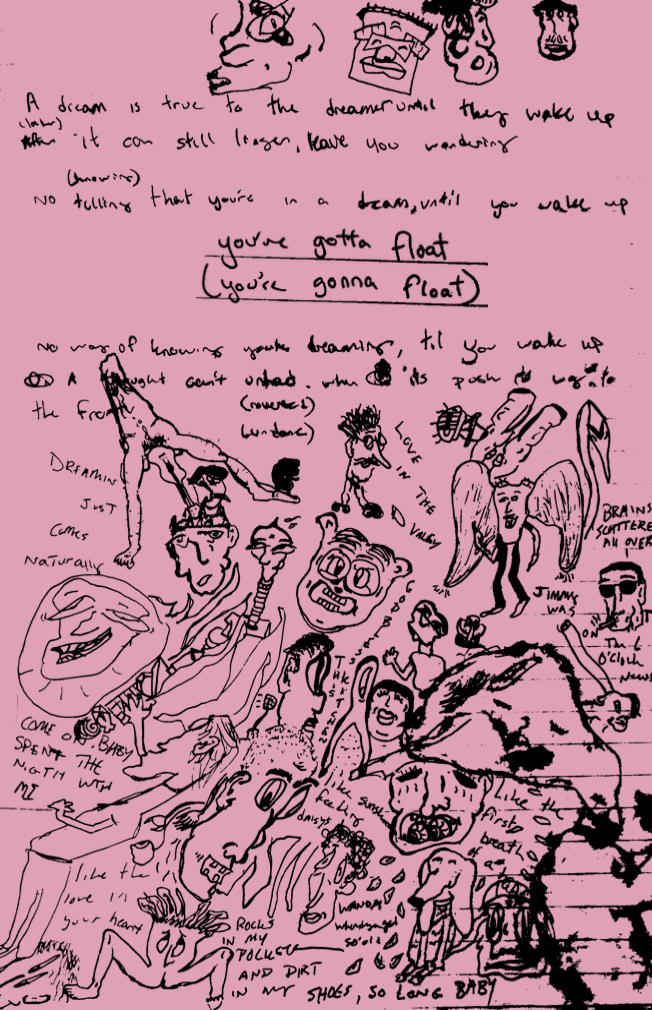 A dream is true to the dreamer until they wake up
(later)
it can still linger, leave you wandering
(knowing)
No telling that you're in a dream, until you wake up
you've gotta float
(you're gonna float)
no way of knowing you're dreaming, til you wake up
A thought can't when its push to
the front
(reversed)
(undone)
DREAMIN
JUST
COMES
Naturally
LOVE
IN THE
VALLEY
BRAINS
SCATTERE
All OVER
JIMMY
WAS
ON
The 6
O'Clock
News
COME ON BABY
SPENT THE
NIGTH WITH
MI
like sunshine
feeling
daisys
like the
first
breath
of
a
like the
love in
your heart
WANDA
ROCKS
IN MY
POCKETS
AND DIRT
IN MY SHOES, SO LONG BABY